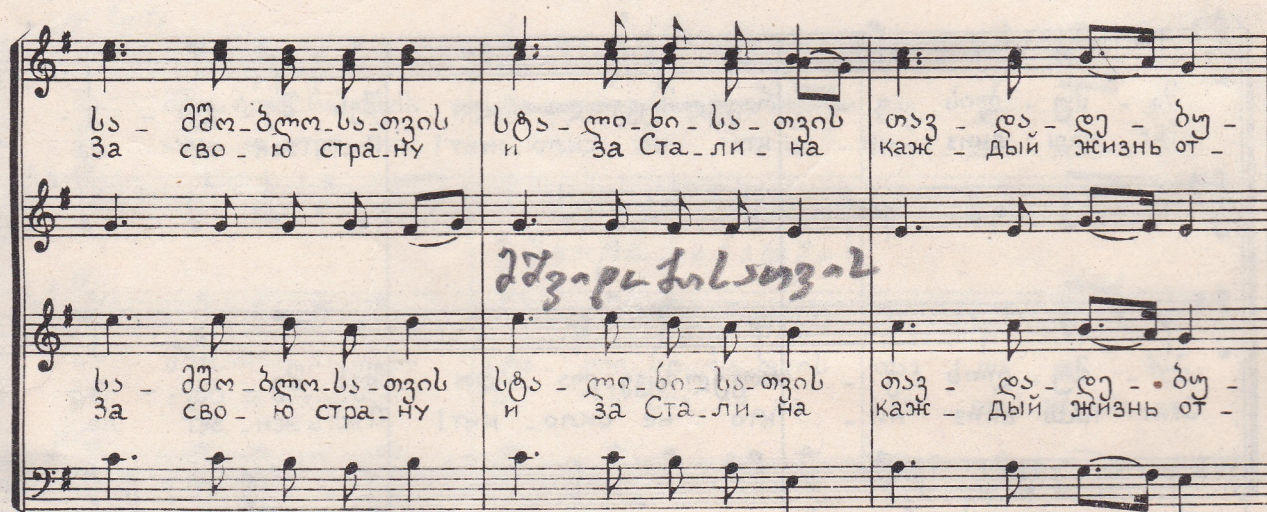 სა _ მშო _ ბლო _ სა _ თვის სტა _ ლი _ ნი _ სა _ თვის თავ _ და _ დე _ ბუ _
За сво _ ю стра _ ну и за Ста _ ли _ на каж _ дый жизнь от _
მშვიდობისათვის
სა _ მშო _ ბლო _ სა _ თვის სტა _ ლი _ ნი _ სა _ თვის თავ _ და _ დე _ ბუ _
За сво _ ю стра _ ну и за Ста _ ли _ на каж _ дый жизнь от _